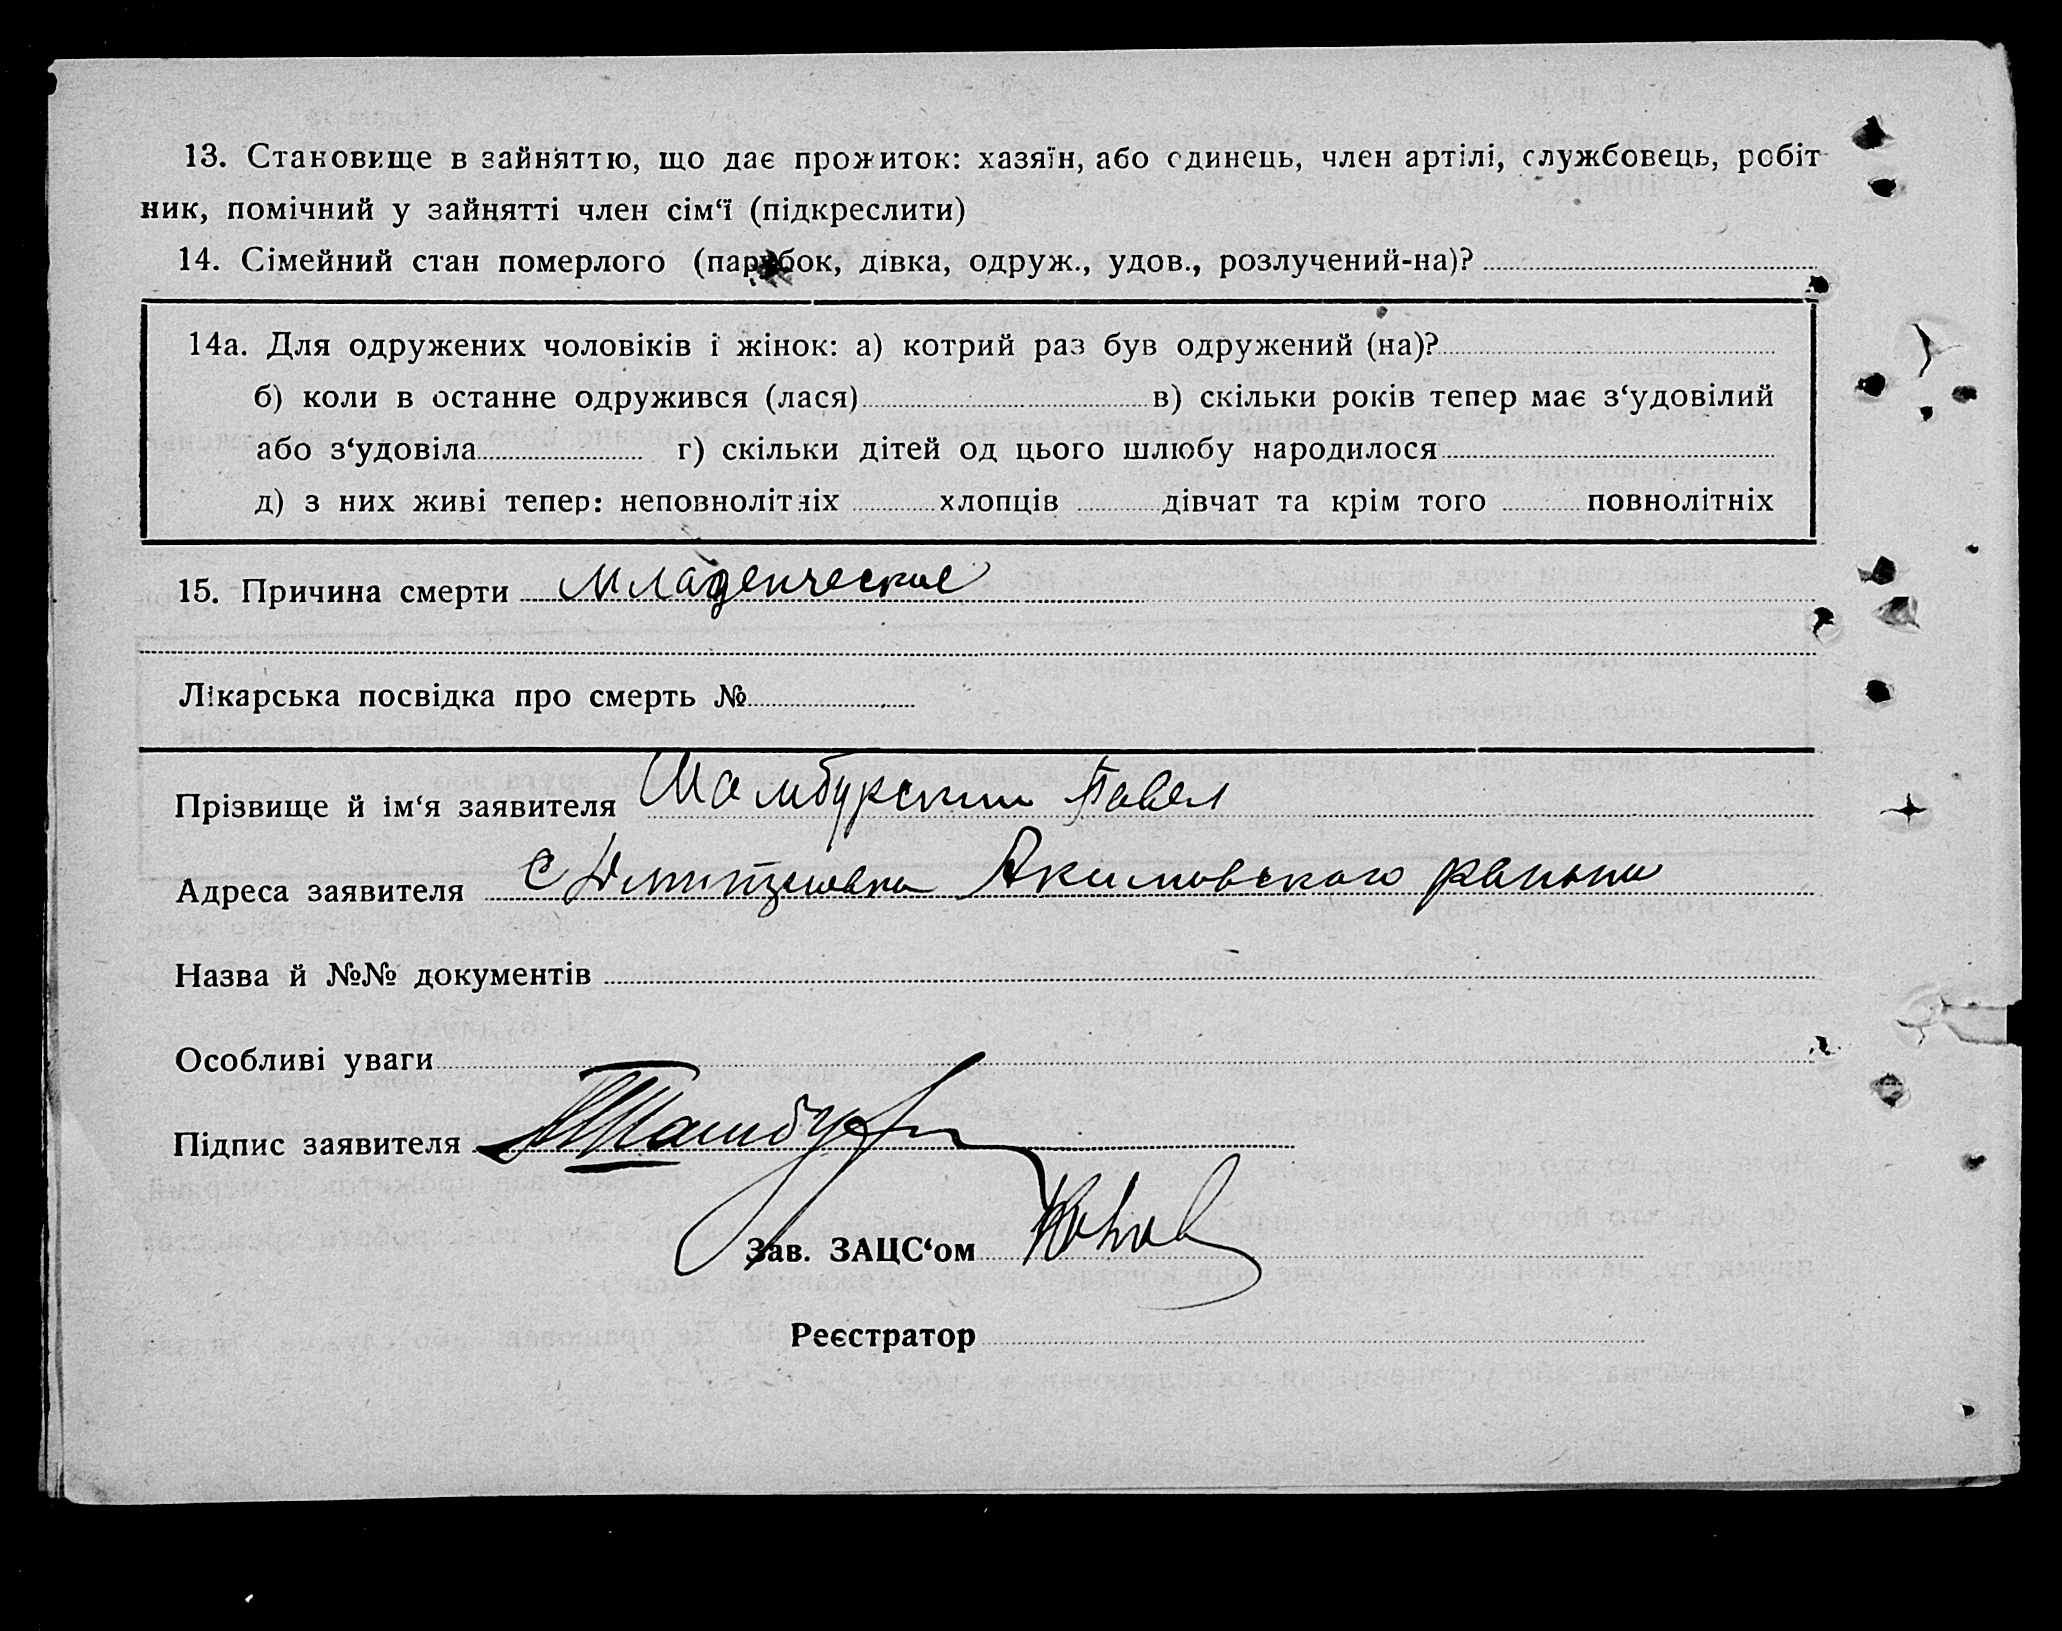 13. Становище в зайняттю, що дає прожиток: хазяїн, або єдинець, член артілі, службовець, робіт
ник, помічний у зайнятті член сім‘ї (підкреслити)
14. Сімейний стан померлого (парубок, дівка, одруж., удов., розлучений-на)?
14а. Для одружених чоловіків і жінок: а) котрий раз був одружений (на)?
б) коли в останне одружився (лася) в) скільки років тепер має з‘удовілий
або з‘удовіла г) скільки дітей од цього шлюбу народилося
д) з них живі тепер: неповнолітніх хлопців дівчат та крім того повнолітніх
15. Причина смерти младенческие
Лікарська посвідка про смерть №
Прізвище й ім‘я заявителя Шамбурский Павел
Адреса заявителя с Дмитровка Акимовского району
Назва й №№ документів
Особливі уваги
Підпис заявителя
Зав. ЗАЦС‘ом
Реєстратор